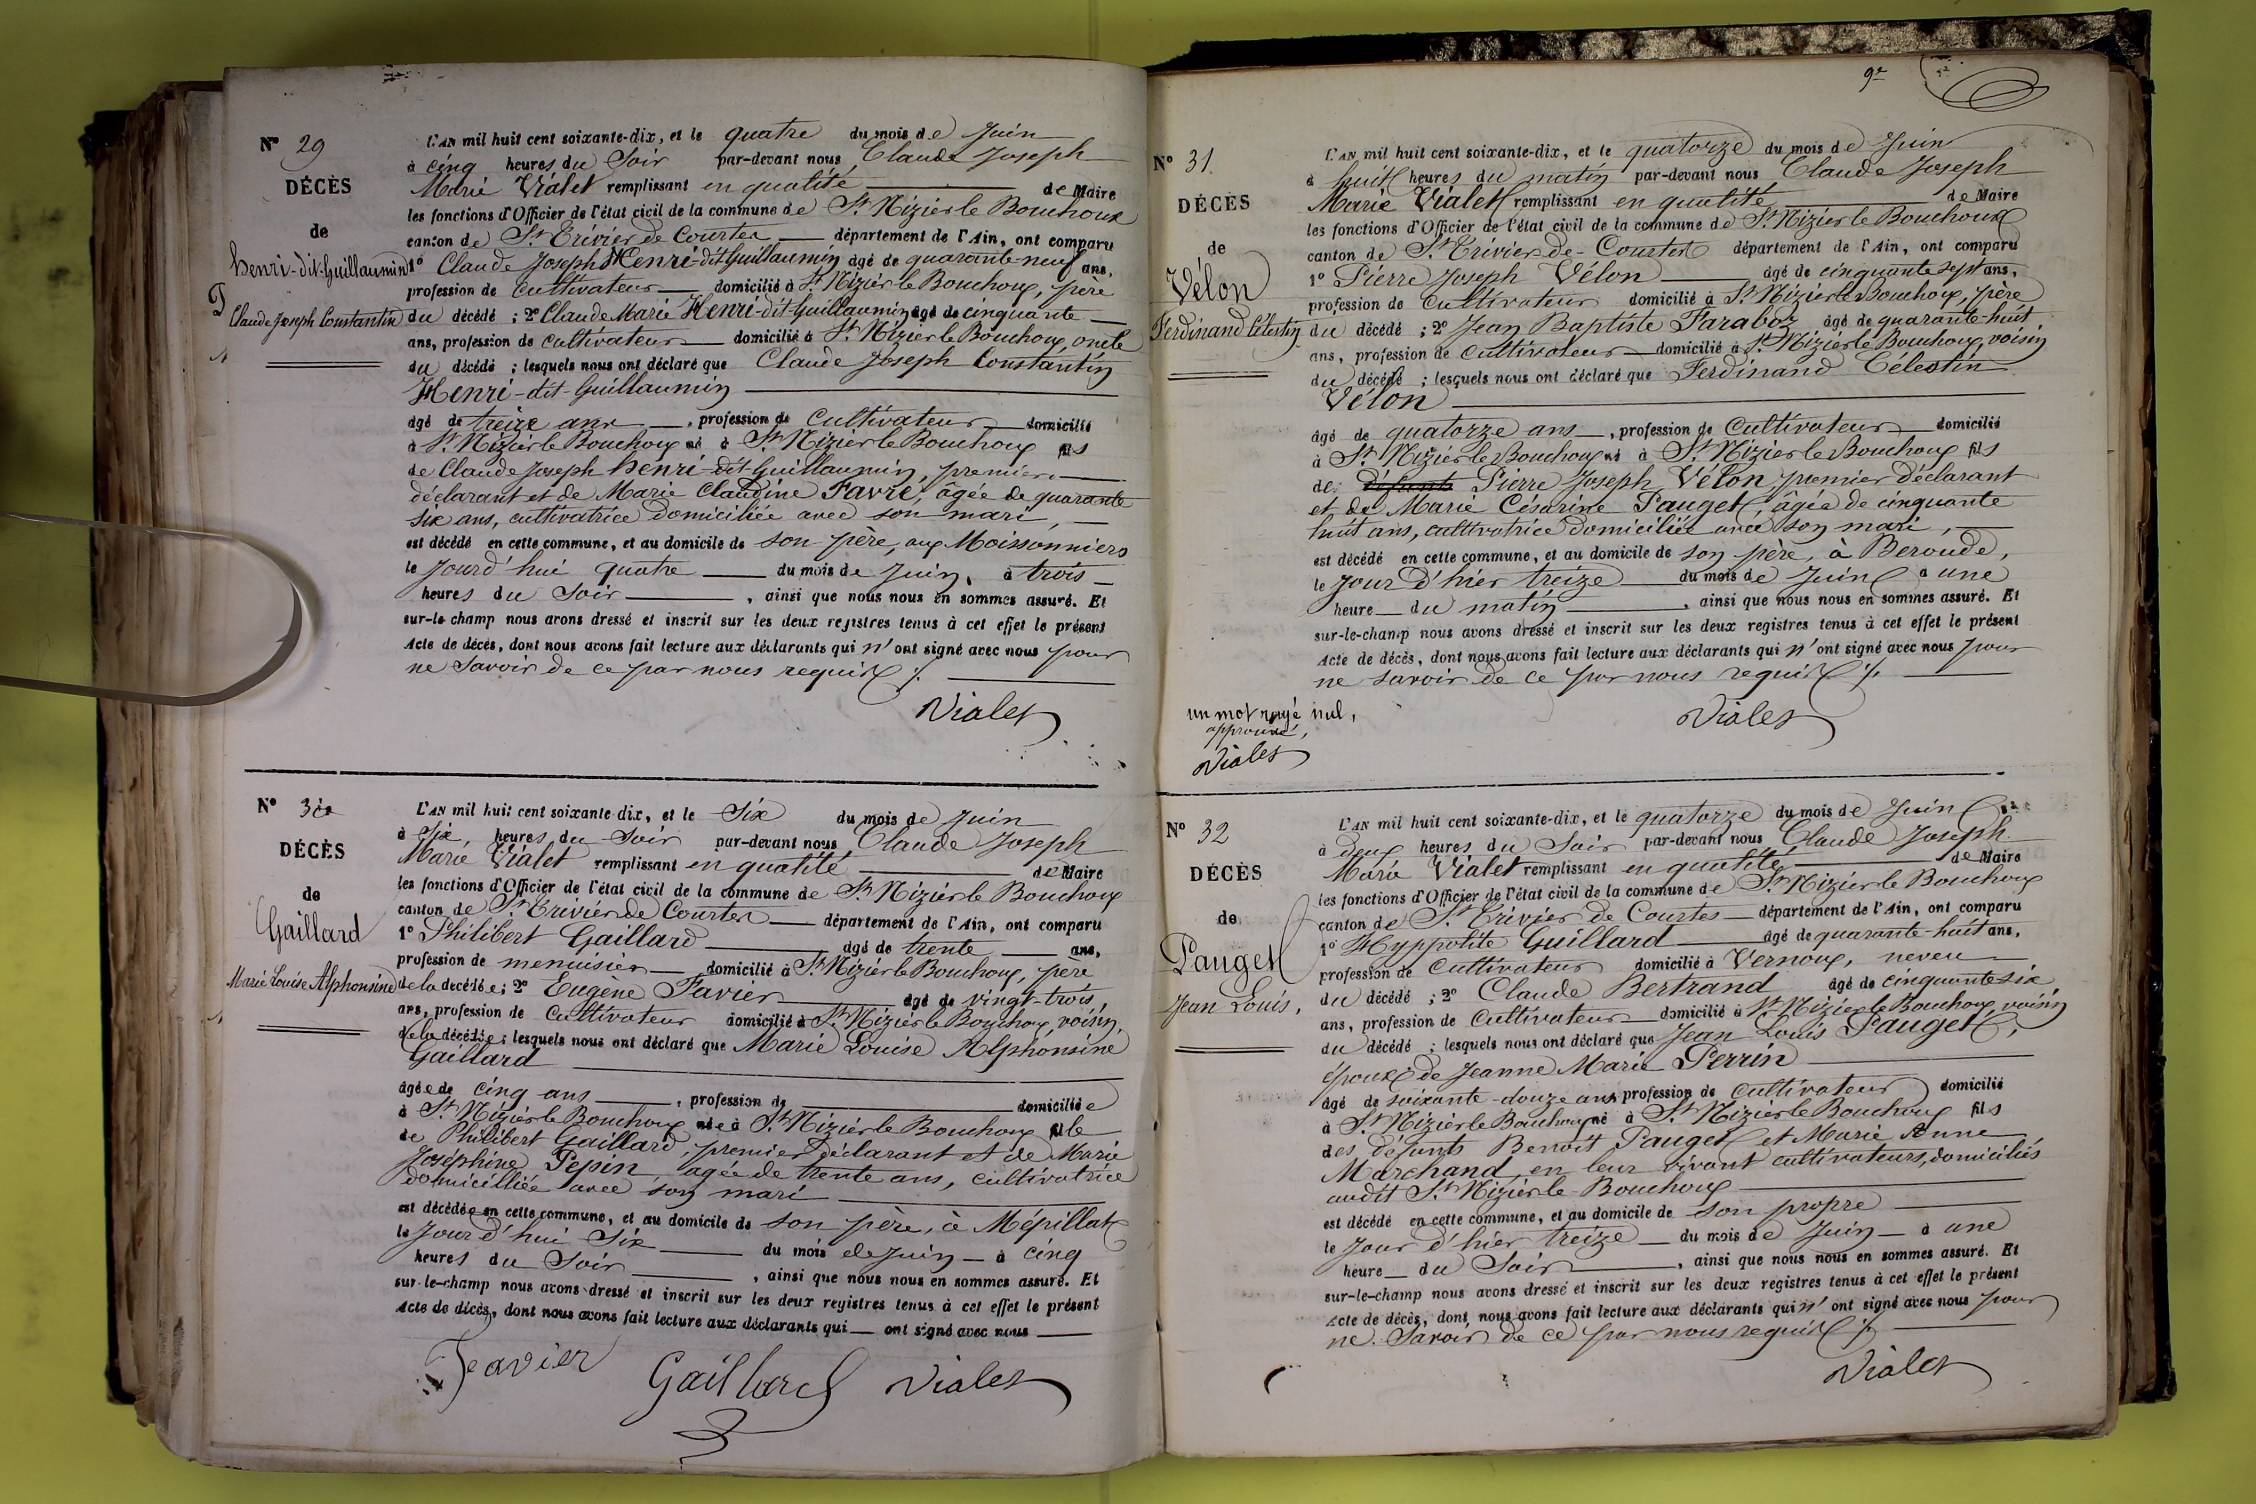 N° 29
DÉCÈS
de
henri-dit-Guillaumin
Claude Joseph Constantin
L'AN mil huit cent soixante-dix, et le quatre du mois de Juin
à cinq heures du Soir par-devant nous Claude Joseph
Marie Vialet remplissant en qualité de Maire
les fonctions d'Officier de l'état civil de la commune de St Nizier le Bouchoux
canton de St Trivier de Courtes département de l'Ain, ont comparu
1° Claude Joseph Henri-dit-Guillaumin âgé de quarante-neuf ans,
profession de cultivateur domicilié à St Nizier le Bouchoux, père
du décédé ; 2° Claude Marie Henri-dit-Guillaumin âgé de cinquante
ans, profession de cultivateur domicilié à St Nizier le Bouchoux, oncle
du décédé ; lesquels nous ont déclaré que Claude Joseph Constantin
Henri-dit-Guillaumin
âgé de treize ans, profession de cultivateur domicilié
à St Nizier le Bouchoux né à St Nizier le Bouchoux fils
de Claude Joseph henri-dit-Guillaumin, premier
déclarant et de Marie Claudine Favre, âgée de quarante
six ans, cultivatrice domiciliée avec son mari,
est décédé en cette commune, et au domicile de son père, aux Moissonniers
le Jourd'hui quatre du mois de Juin, à trois
heures du Soir, ainsi que nous nous en sommes assuré. Et
sur-le-champ nous avons dressé et inscrit sur les deux registres tenus à cet effet le présent
Acte de décès, dont nous avons fait lecture aux déclarants qui n'ont signé avec nous pour
ne Savoir de ce par nous requis ./.
Vialet
N° 30
DÉCÈS
de
Gaillard
Marie Louise Alphonsine
L'AN mil huit cent soixante-dix, et le Six du mois de Juin
à Six heures du Soir par-devant nous Claude Joseph
Marie Vialet remplissant en qualité de Maire
les fonctions d'Officier de l'état civil de la commune de St Nizier le Bouchoux
canton de St Trivier de Courtes département de l'Ain, ont comparu
1° Philibert Gaillard âgé de trente ans,
profession de menuisier domicilié à St Nizier le Bouchoux, père
de la décédée ; 2° Eugène Favier âgé de vingt-trois,
ans, profession de cultivateur domicilié à St Nizier le Bouchoux, voisin,
de la décédée ; lesquels nous ont déclaré que Marie Louise Alphonsine
Gaillard
âgée de cinq ans, profession de domiciliée
à St Nizier le Bouchoux née à St Nizier le Bouchoux fille
de Philibert Gaillard, premier déclarant et de Marie
Joséphine Pepin âgée de trente ans, cultivatrice
domicilliée avec son mari
est décédée en cette commune, et au domicile de son père, à Mépillat
le Jourd'hui Six du mois de Juin à cinq
heures du Soir, ainsi que nous nous en sommes assuré. Et
sur-le-champ nous avons dressé et inscrit sur les deux registres tenus à cet effet le présent
Acte de décès, dont nous avons fait lecture aux déclarants qui ont signé avec nous
Favier Gaillard Vialet
9e
N° 31
DÉCÈS
de
Vélon
Ferdinand Célestin
L'AN mil huit cent soixante-dix, et le quatorze du mois de Juin
à huit heures du matin par-devant nous Claude Joseph
Marie Vialet remplissant en qualité de Maire
les fonctions d'Officier de l'état civil de la commune de St Nizier le Bouchoux
canton de St Trivier-de-Courtes département de l'Ain, ont comparu
1° Pierre Joseph Vélon âgé de cinquante sept ans,
profession de cultivateur domicilié à St Nizier le Bouchoux, père
du décédé ; 2° Jean Baptiste Faraboz âgé de quarante-huit
ans, profession de cultivateur domicilié à St Nizier le Bouchoux, voisin
du décédé ; lesquels nous ont déclaré que Ferdinand Célestin
Vélon
âgé de quatorze ans, profession de cultivateur domicilié
à St Nizier le Bouchoux né à St Nizier le Bouchoux fils
de défunts Pierre Joseph Vélon premier déclarant
et de Marie Césarine Pauget, âgée de cinquante
huit ans, cultivatrice domiciliée avec son mari,
est décédé en cette commune, et au domicile de son père, à Beroude,
le Jour d'hier treize du mois de Juin à une
heure du matin, ainsi que nous nous en sommes assuré. Et
sur-le-champ nous avons dressé et inscrit sur les deux registres tenus à cet effet le présent
Acte de décès, dont nous avons fait lecture aux déclarants qui n'ont signé avec nous pour
ne savoir de ce par nous requis ./.
un mot rayé nul,
approuvé,
Vialet
Vialet
N° 32
DÉCÈS
de
Pauget
Jean Louis,
L'AN mil huit cent soixante-dix, et le quatorze du mois de Juin
à deux heures du Soir par-devant nous Claude Joseph
Marie Vialet remplissant en qualité de Maire
les fonctions d'Officier de l'état civil de la commune de St Nizier le Bouchoux
canton de St Trivier de Courtes département de l'Ain, ont comparu
1° Hyppolite Guillard âgé de quarante-huit ans,
profession de cultivateur domicilié à Vernoux, neveu
du décédé ; 2° Claude Bertrand âgé de cinquante six
ans, profession de cultivateur domicilié à St Nizier le Bouchoux, voisin
du décédé ; lesquels nous ont déclaré que Jean Louis Pauget,
époux de Jeanne Marie Perrin
âgé de soixante-douze ans, profession de cultivateur domicilié
à St Nizier le Bouchoux né à St Nizier le Bouchoux fils
des défunts Benoît Pauget et Marie Anne
Marchand, en leur vivant cultivateurs, domiciliés
audit St Nizier le Bouchoux
est décédé en cette commune, et au domicile de son propre
le Jour d'hier treize du mois de Juin à une
heure du Soir, ainsi que nous nous en sommes assuré. Et
sur-le-champ nous avons dressé et inscrit sur les deux registres tenus à cet effet le présent
Acte de décès, dont nous avons fait lecture aux déclarants qui n'ont signé avec nous pour
ne Savoir de ce par nous requis ./.
Vialet